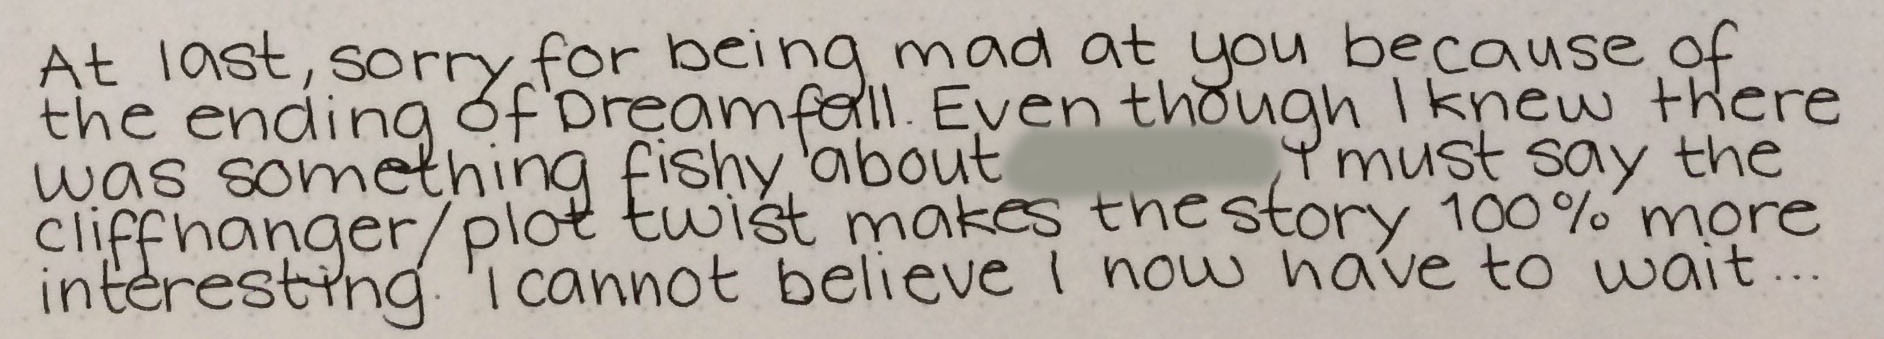 At last, sorry for being mad at you because of
the ending of Dreamfall. Even though I knew there
was something fishy about , I must say the
cliffhanger/plot twist makes the story 100% more
interesting. I cannot believe I now have to wait...